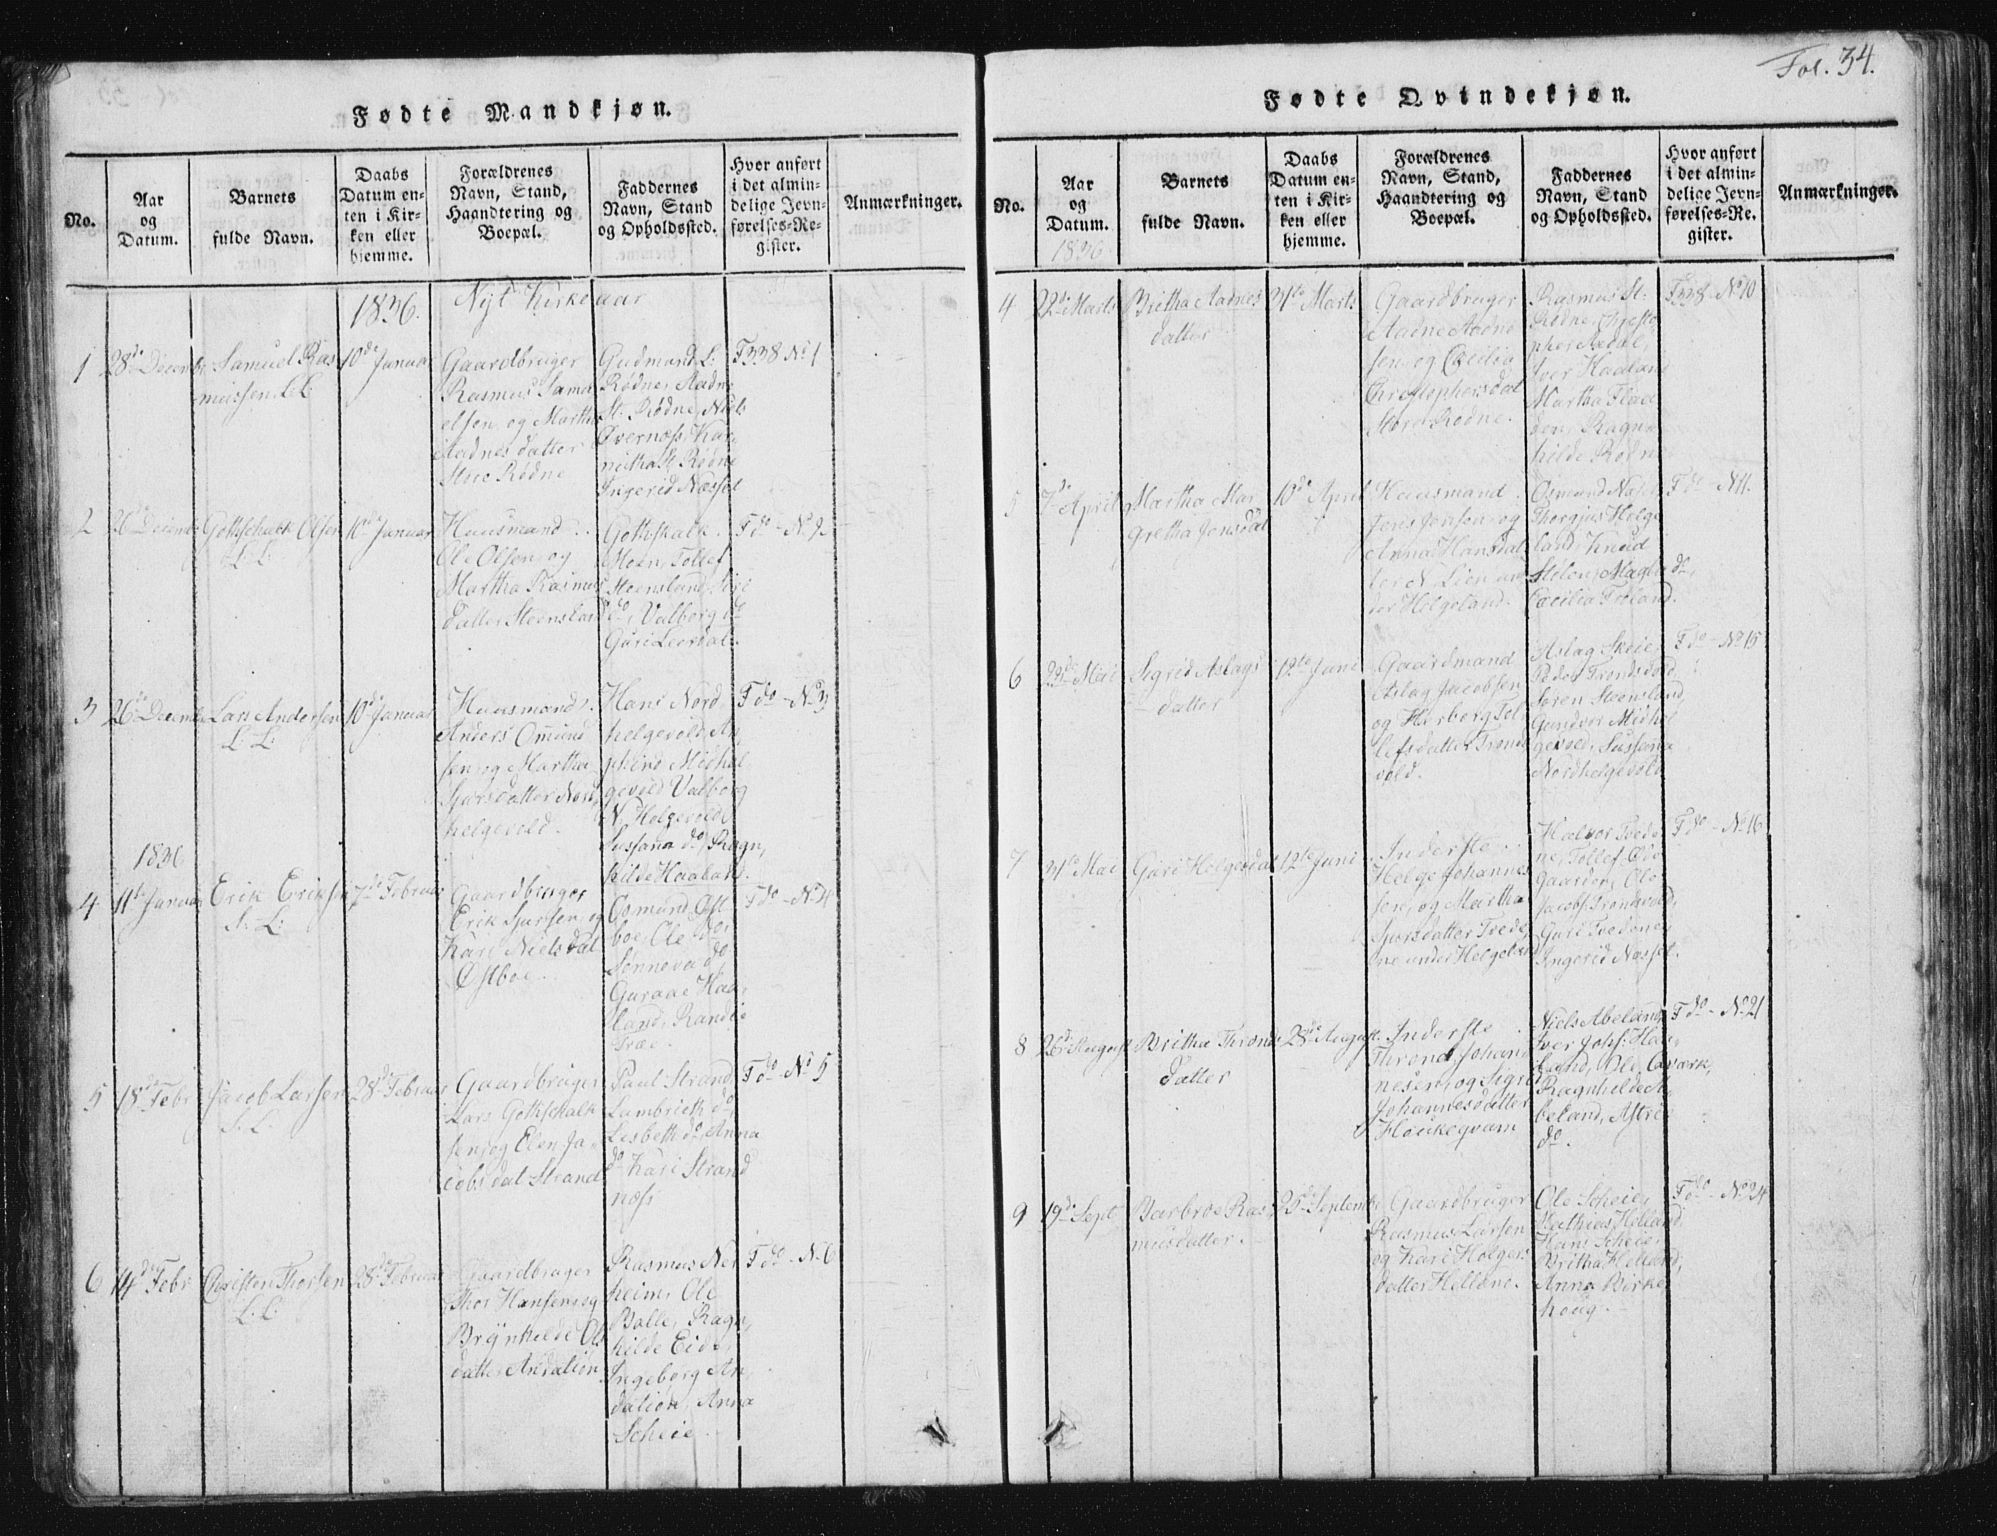 Fol. 34.
Fødte Mandkjøn.
No.
Aar og Datum.
Barnets fulde Navn.
Daabs Datum enten i Kirken eller hjemme.
Forældrenes Navn, Stand, Haandtering og Boepæl.
Faddernes Navn, Stand og Opholdssted.
Hvor anført i det almindelige Jevnførelses-Register.
Anmærkninger.
1836.
Nyt Kirkeaar
1
28de Decembr
Samuel Rasmussen L:L:
10de Januar
Gaardbruger
Rasmus Samu
elsen, og Martha
Aadnes datter
Store Rødne
Gudmund L:
Rødne, Aadne
St: Rødne, Niels
Øvernæss, Kar
St: Rødne
Ingerid Næssel
F 338 No 1
2
26de Decembr
Gothschalk Olsen
L: L:
10de Januar
Huusmand
Ole Olsen, og
Martha Rasmus
datter Steensland
Gothskalk
Moen, Tollef
Steensland,
do, Valborg do
Guri Leerdal.
F do - No 2
3
26de Decembr
Lars Andersen
L: L:
10de Januar
Huusmand
Anders Omund
sen, og Martha
Sjursdatter Nord
helgevold.
Hans Nord
helgevold,
Midhel
gevold Valborg
N. Helgevold
Sussana do, Ragn
hilde Haaland.
F do - No 3
1836
4
11te Januar
Erik Eriksen
L:
7de Februar
Gaardbruger
Erik Sjursen, og
Kari Nielsdat
Østboe.
Osmund Øst
boe, Ole do,
Sønneva do,
Guraae Haa
land, Randie
Træe.
F do - No 4
5
18de Febr
Jacob Larsen
L:
28de Februar
Gaardbruger
Lars Gothschalk
sen, og Elen Ja
cobsdat Strand
Paul Strand,
Lambrith do,
Lisbeth do, Anna
do Kari Strand
næss
F do - No 5
6
14de Febr
Christen Thorsen
L: L:
28de Februar
Gaardbruger
Thor Hansen og
Brynhilde Ols
datter Andalion
Rasmus Ner
heim, Ole
Balle, Ragn
hilde Eide,
Ingeborg An
dalion, Anna
Scheie.
F do - No 6
Fødte Qvindekjøn.
No.
Aar og Datum.
1836
Barnets fulde Navn.
Daabs Datum enten i Kirken eller hjemme.
Forældrenes Navn, Stand, Haandtering og Boepæl.
Faddernes Navn, Stand og Opholdssted.
Hvor anført i det almindelige Jevnførelses-Register.
Anmærkninger.
4
22de Marts
Britha Aadnes
datter
31te Marts
Gaardbruger
Aadne Aadne
sen, og Cæcilia
Christophersdat
Store Rødne.
Rasmus St:
Rødne, Christo
pher Aadal,
Iver Haaland
Martha Flad
den, Ragn
hilde Rødne
F 338 - No 10
5
7de April
Martha Mar
gretha Jonsdat
10de April
Huusmand
Jens Jonsen, og
Anna Hansdat
ter N. Lien un
der Helgeland.
Osmund
Thorgjus Helge
land, Knud
do,
Cæcilia
F do - No 11.
6
22de Mai
Sigrid Aslags
datter
12te Juni
Gaardmand
Aslag Jacobsen
og Herborg Tol
lefsdatter Tronds
vold.
Aslag Skeie,
Peder Trondsvold,
Søren Steensland,
Gundvor Midhel
gevold, Sussana
Nordhelgevold
F do - No 15
7
31te Mai
Guri Helgesdat
12te Juni
Inderste
Helge Johannes
sen, og Martha
Sjursdatter Trede
ne under Helgeland
Halvor Trede
ne, Tollef Øde
gaarden, Ole
Jacobs. Trondsvold,
Guri Tredene,
Ingerid Næssel.
F do - No 16
8
26de August
Britha Thronds
datter
28de August
Inderste
Thrond Johan
nesen, og Sigrid
Johannesdatter
Houkeqvam
Niels Abeland,
Iver Johs: Haa
land, Ole Qværk,
Ragnhilde A
beland, Astri
do.
F do - No 21
9
19de Sept
Barbroe Ras
musdatter.
25de Septembr
Gaardbruger
Rasmus Larsen
og Kari Holgers
datter Hellene.
Ole Scheie,
Mathias Helland
Hans Scheie,
Britha Helland,
Anna Birke
houg.
F do - No 24